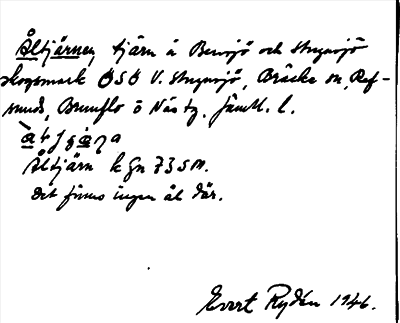 Åltjärnen, tjärn å Bensjö och Stugusjö
skogsmark OSO V. Stugusjö, Bräcke sn, Ref-
sunds, Brunflo o Näs tg. Jämtl. l.
Åltjärn k Gn 73 SM.
Det finns ingen ål där.
Evert Rydén 1946.